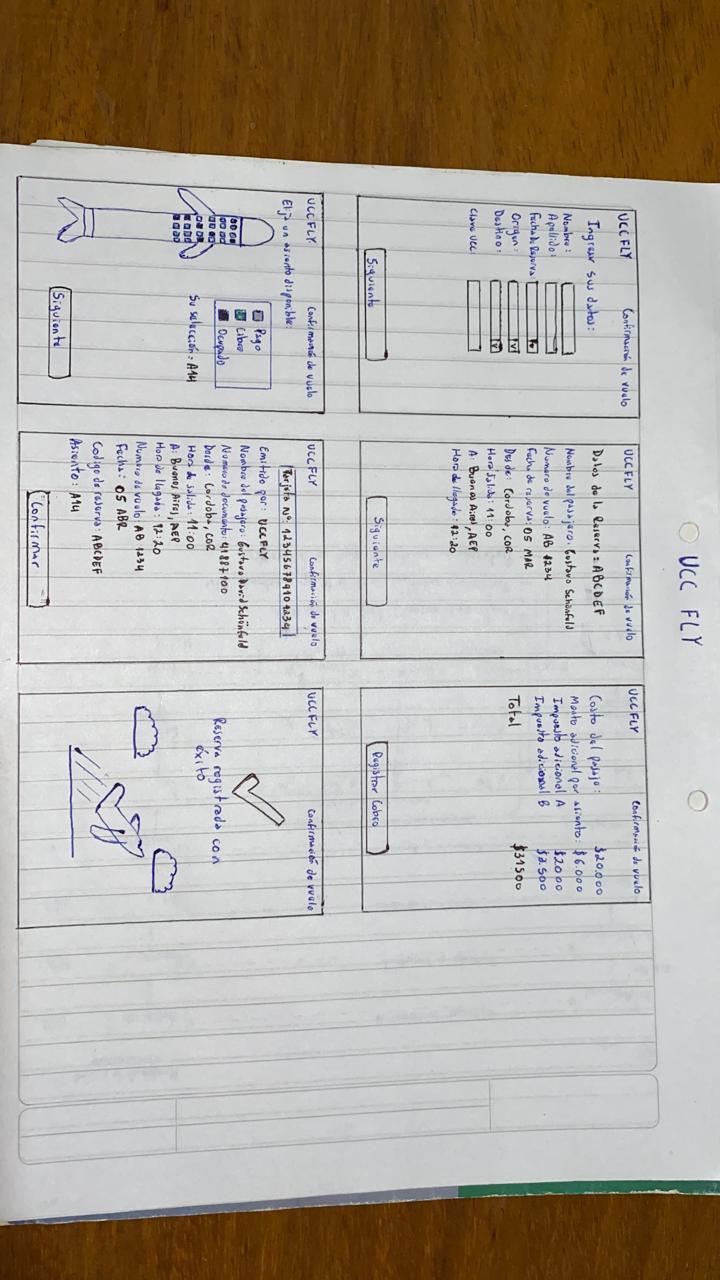 UCC FLY
UCCFLY Confirmación de vuelo
Ingresar sus datos:
Nombre:
Apellido:
Fecha de Reserva:
Origen:
Destino:
Clave UCC
Siguiente
UCCFLY Confirmación de vuelo
Datos de la Reserva: ABCDEF
Nombre del pasajero: Gustavo Schönfeld
Numero de vuelo: AB 1234
Fecha de reserva: 05 MAR
Desde: Cordoba, COR
Hora salida: 11:00
A: Buenos Aires, AEP
Hora de llegada: 12:20
Siguiente
UCCFLY Confirmación de vuelo
Costo del pasaje: $20.000
Monto adicional por asiento: $6.000
Impuesto adicional A $2000
Impuesto adicional B $3.500
Total $31500
Registrar Cobro
UCCFLY Confirmación de vuelo
Elija un asiento disponible:
Pago
Libre
Ocupado
Su selección: A14
Siguiente
UCCFLY Confirmación de vuelo
Tarjeta Nº: 123456789101234
Emitido por: UCCFLY
Nombre del pasajero: Gustavo David Schönfeld
Numero de documento: 41887100
Desde: Cordoba, COR
Hora de salida: 11:00
A: Buenos Aires, AEP
Hora de llegada: 12:20
Numero de vuelo: AB 1234
Fecha: 05 ABR
Codigo de reserva: ABCDEF
Asiento: A14
Confirmar
UCCFLY Confirmación de vuelo
Reserva registrada con
éxito